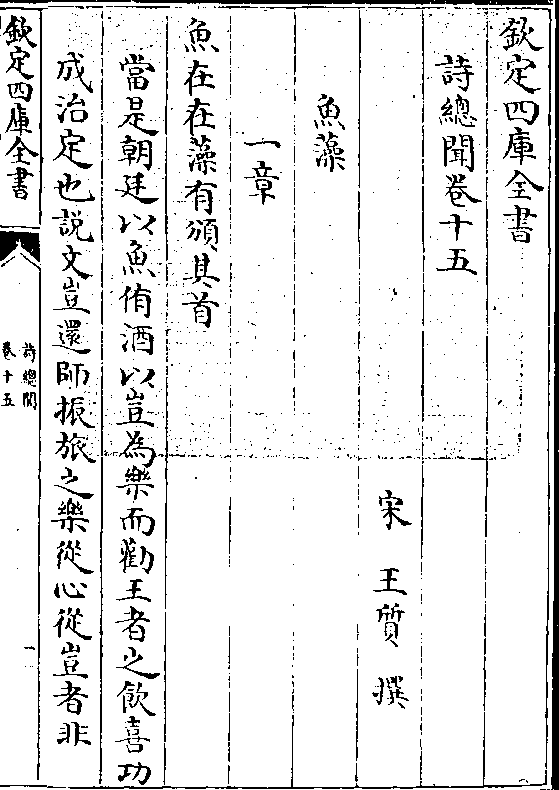 欽定四庫全書
詩總聞卷十五
宋 王質 撰
魚藻
一章
魚在在藻有頒其首
當是朝廷以魚侑酒以豈為樂而勸王者之飲喜功
成治定也説文豈還師振旅之樂從心從豈者非
欽定四庫全書
詩總聞
卷十五
一